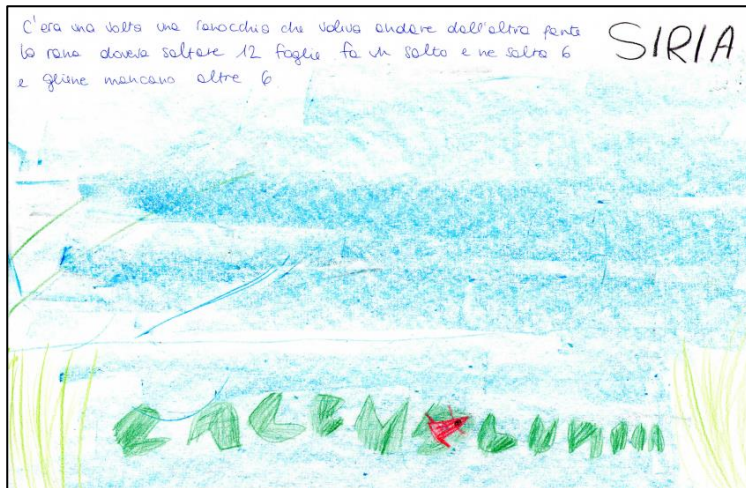 C'era una volta una ranocchia che voliva andare dall'altra parte
la rana doveva saltare 12 foglie fa un salto e ne salta 6
e gliene mancano altre 6
SIRIA